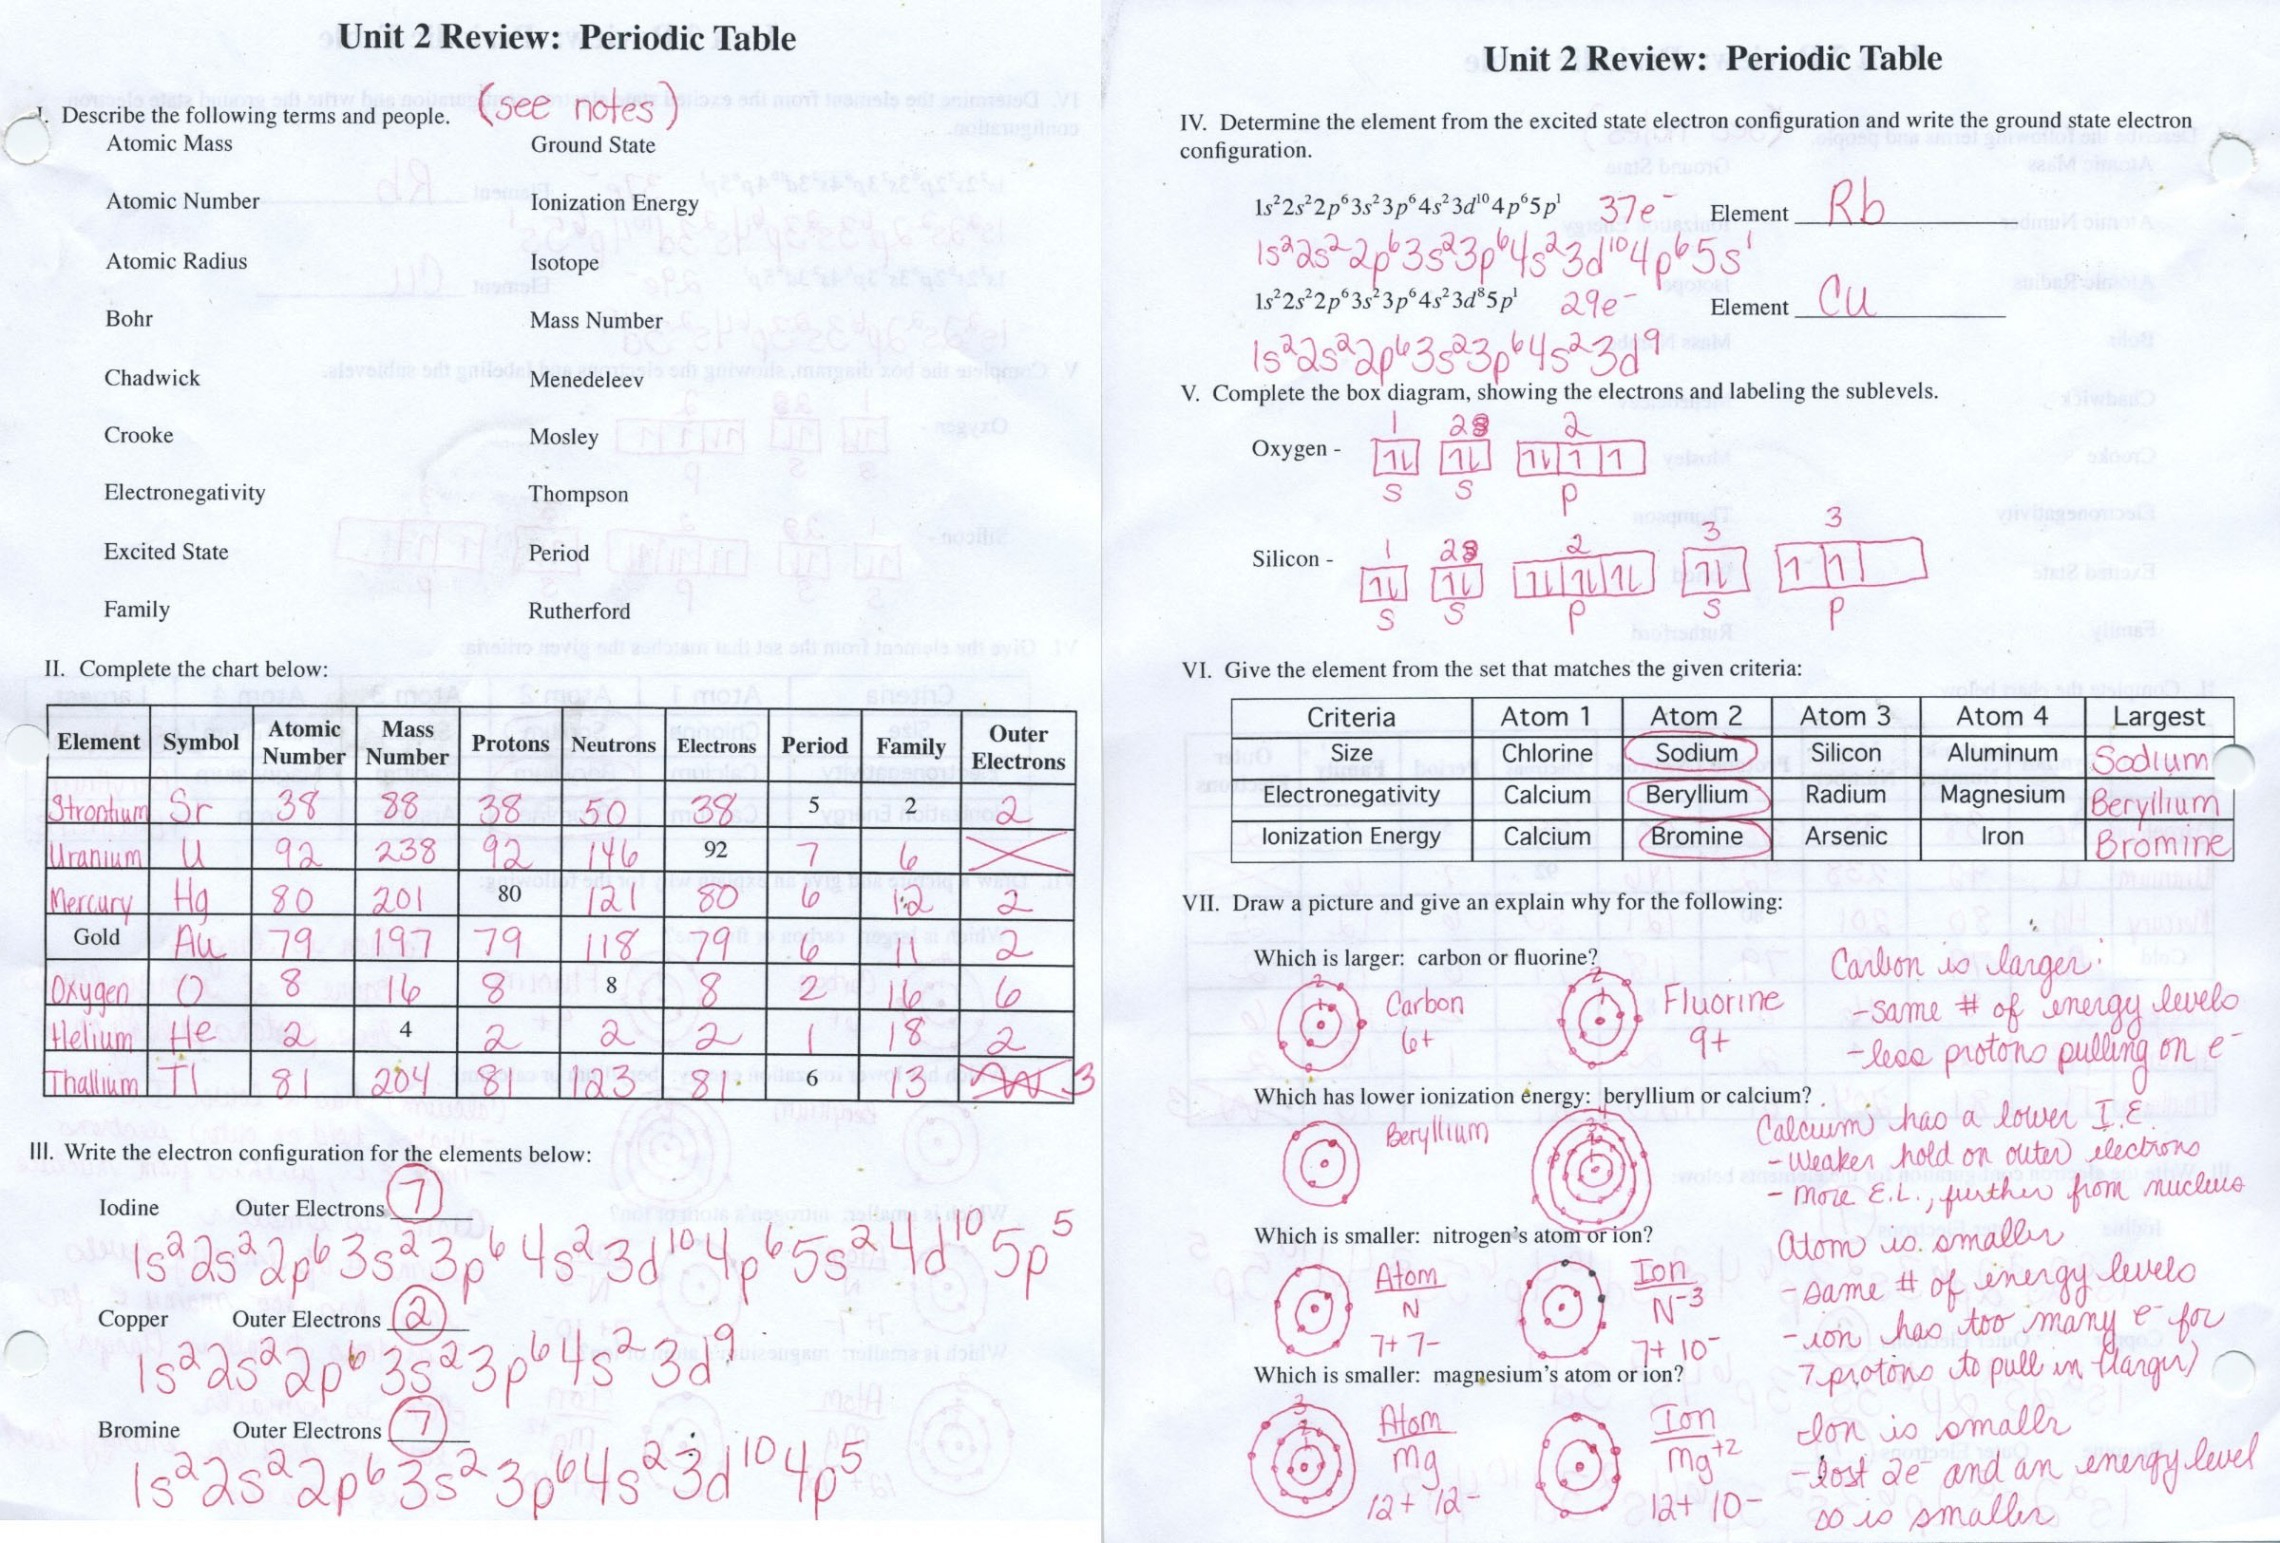 Unit 2 Review: Periodic Table
I. Describe the following terms and people. (see notes)
Atomic Mass Ground State
Atomic Number Ionization Energy
Atomic Radius Isotope
Bohr Mass Number
Chadwick Menedeleev
Crooke Mosley
Electronegativity Thompson
Excited State Period
Family Rutherford
II. Complete the chart below:
Element Symbol Atomic Number Mass Number Protons Neutrons Electrons Period Family Outer Electrons
Strontium Sr 38 88 38 50 38 5 2 2
Uranium U 92 238 92 146 92 7 6
Mercury Hg 80 201 80 121 80 6 12 2
Gold Au 79 197 79 118 79 6 11 2
Oxygen O 8 16 8 8 8 2 16 6
Helium He 2 4 2 2 2 1 18 2
Thallium Tl 81 204 81 123 81 6 13 3
III. Write the electron configuration for the elements below:
Iodine Outer Electrons 7
1s²2s²2p⁶3s²3p⁶4s²3d¹⁰4p⁶5s²4d¹⁰5p⁵
Copper Outer Electrons 2
1s²2s²2p⁶3s²3p⁶4s²3d⁹
Bromine Outer Electrons 7
1s²2s²2p⁶3s²3p⁶4s²3d¹⁰4p⁵
Unit 2 Review: Periodic Table
IV. Determine the element from the excited state electron configuration and write the ground state electron
configuration.
1s²2s²2p⁶3s²3p⁶4s²3d¹⁰4p⁶5p¹ 37e⁻ Element Rb
1s²2s²2p⁶3s²3p⁶4s²3d¹⁰4p⁶5s¹
1s²2s²2p⁶3s²3p⁶4s²3d⁸5p¹ 29e⁻ Element Cu
1s²2s²2p⁶3s²3p⁶4s²3d⁹
V. Complete the box diagram, showing the electrons and labeling the sublevels.
1 2 2
Oxygen - 1l 1l 1l 1 1
s s p
1 2 2 3 3
Silicon - 1l 1l 1l 1l 1l 1l 1 1
s s p s p
VI. Give the element from the set that matches the given criteria:
Criteria Atom 1 Atom 2 Atom 3 Atom 4 Largest
Size Chlorine Sodium Silicon Aluminum Sodium
Electronegativity Calcium Beryllium Radium Magnesium Beryllium
Ionization Energy Calcium Bromine Arsenic Iron Bromine
VII. Draw a picture and give an explain why for the following:
Which is larger: carbon or fluorine?
2 1 Carbon 6+
2 1 Fluorine 9+
Carbon is larger:
-same # of energy levels
-less protons pulling on e⁻
Which has lower ionization energy: beryllium or calcium?
Beryllium
4 3 2 1
Calcium has a lower I.E.
- Weaker hold on outer electrons
- more E.L., further from nucleus
Which is smaller: nitrogen's atom or ion?
Atom N 7+ 7-
Ion N⁻³ 7+ 10⁻
Atom is smaller
- same # of energy levels
- ion has too many e⁻ for
7 protons to pull in (larger)
Which is smaller: magnesium's atom or ion?
3 2 1 Atom Mg 12+ 12-
Ion Mg⁺² 12+ 10-
-Ion is smaller
- lost 2e⁻ and an energy level
so is smaller